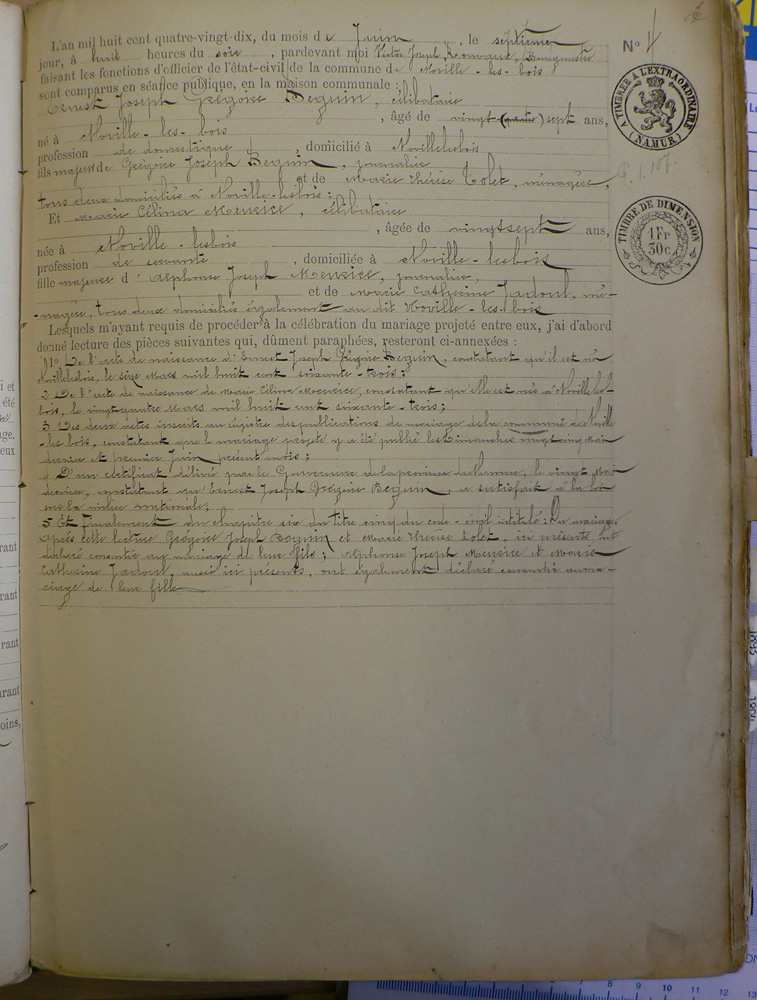 L'an mil huit cent quatre-vingt-dix, du mois de Juin, le septième
jour, à huit heures du soir, pardevant moi Victor Joseph, Bourgmestre
faisant les fonctions d'officier de l'état-civil de la commune de Noville-les-bois
sont comparus en séance publique, en la maison communale :
Ernest Joseph Grégoire Beguin, célibataire
, âgé de vingt (quatre) sept ans,
né à Noville-les-bois
profession de domestique, domicilié à Novillelesbois
fils majeur de Grégoire Joseph Beguin, journalier
et de Marie Thérèse Colet, ménagère,
tous deux domiciliés à Noville-lesbois :
Et Marie Célina Meurice, célibataire
, âgée de vingtsept ans,
née à Noville-lesbois
profession de servante, domiciliée à Noville-lesbois
fille majeure d'Alphonse Joseph Meurice, journalier,
et de Marie Catherine Jadoul, mé-
nagère, tous deux domiciliés également au dit Noville-les-bois
Lesquels m'ayant requis de procéder à la célébration du mariage projeté entre eux, j'ai d'abord
donné lecture des pièces suivantes qui, dûment paraphées, resteront ci-annexées :
1° De l'acte de naissance d'Ernest Joseph Grégoire Beguin, constatant qu'il est né
Novillelesbois, le seize Mars mil huit cent soixante-trois ;
2 De l'acte de naissance de Marie Célina Meurice, constatant qu'elle est née à Noville les
bois, le vingtquatre Mars mil huit cent soixante-trois ;
3 Des deux actes inserés au régistre des publications de mariage de la commune de Noville
-les-bois, constatant que le mariage projeté y a été publié les Dimanches vingtcinq Mai
dernier et premier Juin présent mois ;
4 D'un certificat délivré par le Gouverneur de la province de Namur, le vingt Mai
dernier, constatant que Ernest Joseph Grégoire Beguin a satisfait à la loi
sur la milice nationale ;
5 Et finalement du chapitre six du titre cinq du code-civil intitulé : Du mariage.
Après celle lecture Grégoire Joseph Beguin et Marie Thérèse Colet, ici présents ont
déclaré consentir au mariage de leur fils ; Alphonse Joseph Meurice et Marie
Catherine Jadoul, aussi ici présents, ont également déclaré consentir au ma-
riage de leur fille
N° 4
TIMBRÉ A L'EXTRAORDINAIRE
(NAMUR)
TIMBRE DE DIMENSION
1 Fr
30 c.
i et
été
age.
eux
rant
rant
rant
urant
oins,
8 9 10 11 12 13